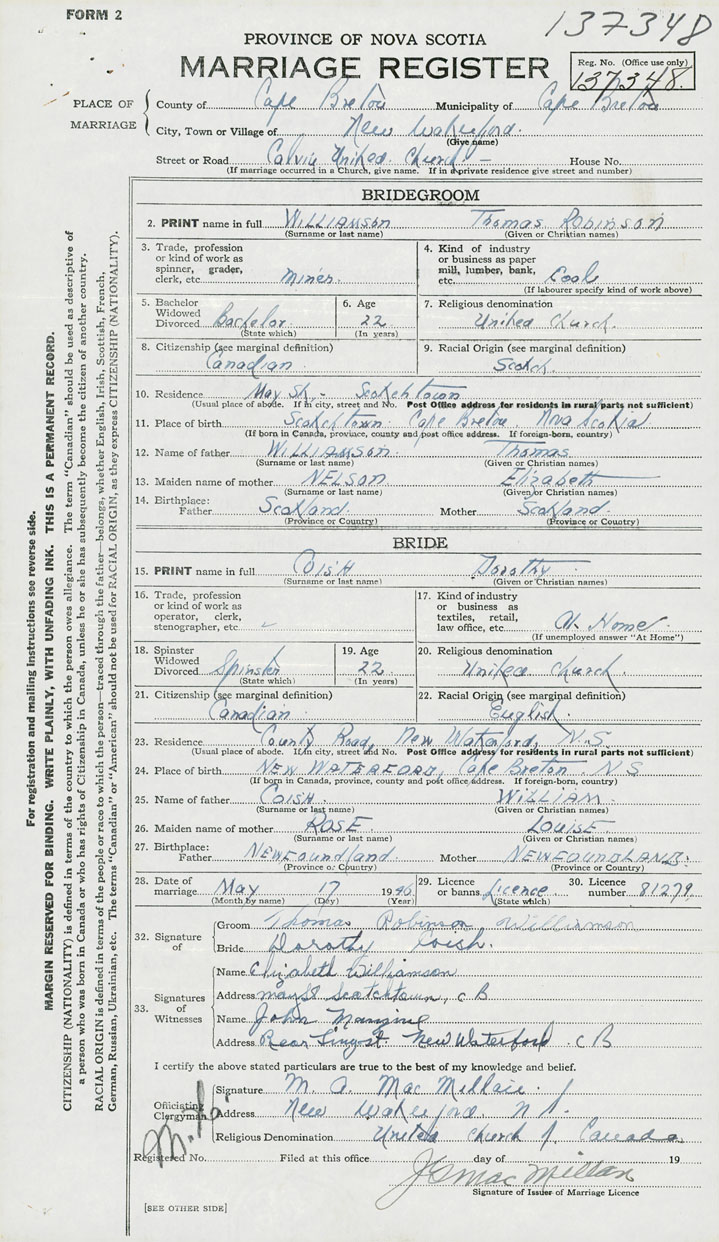 FORM 2
137348
PROVINCE OF NOVA SCOTIA
MARRIAGE REGISTER
Reg. No. (Office use only)
137348.
PLACE OF MARRIAGE
County of Cape Breton Municipality of Cape Breton
City, Town or Village of New Waterford.
(Give name)
Street or Road Calvin United Church. - House No.
(If marriage occurred in a Church, give name. If in a private residence give street and number)
BRIDEGROOM
2. PRINT name in full WILLIAMSON Thomas Robinson
(Surname or last name) (Given or Christian names)
3. Trade, profession or kind of work as spinner, grader, clerk, etc. Miner.
4. Kind of industry or business as paper mill, lumber, bank, etc. Coal
(If labourer specify kind of work above)
5. Bachelor Widowed Divorced Bachelor.
(State which)
6. Age 22
(In years)
7. Religious denomination
United Church.
8. Citizenship (see marginal definition)
Canadian
9. Racial Origin (see marginal definition)
Scotch
10. Residence May St. - Scotchtown
(Usual place of abode. If in city, street and No. Post Office address for residents in rural parts not sufficient)
11. Place of birth Scotchtown Cape Breton Nova Scotia
(If born in Canada, province, county and post office address. If foreign-born, country)
12. Name of father WILLIAMSON. Thomas
(Surname or last name) (Given or Christian names)
13. Maiden name of mother NELSON Elizabeth
(Surname or last name) (Given or Christian names)
14. Birthplace: Father Scotland Mother Scotland.
(Province or Country) (Province or Country)
BRIDE
15. PRINT name in full COISH Dorothy
(Surname or last name) (Given or Christian names)
16. Trade, profession or kind of work as operator, clerk, stenographer, etc
17. Kind of industry or business as textiles, retail, law office, etc. At Home
(If unemployed answer "At Home")
18. Spinster Widowed Divorced Spinster
(State which)
19. Age 22
(In years)
20. Religious denomination
United Church.
21. Citizenship (see marginal definition)
Canadian
22. Racial Origin (see marginal definition)
English
23. Residence County Road, New Waterford, N.S.
(Usual place of abode. If in city, street and No. Post Office address for residents in rural parts not sufficient)
24. Place of birth NEW WATERFORD, Cape Breton. N S
(If born in Canada, province, county and post office address. If foreign-born, country)
25. Name of father COISH. WILLIAM
(Surname or last name) (Given or Christian names)
26. Maiden name of mother ROSE LOUISE.
(Surname or last name) (Given or Christian names)
27. Birthplace: Father NEWFoundland. Mother NEWFOUNDLAND.
(Province or Country) (Province or Country)
28. Date of marriage May 17 1946
(Month by name) (Day) (Year)
29. Licence or banns Licence
(State which)
30. Licence number 81279
32. Signature of
Groom Thomas Robinson Williamson
Bride Dorothy Coish.
33. Signatures of Witnesses
Name Elizabeth Williamson
Address May St Scotchtown, C B
Name John
Address Rear St New Waterford. C B
I certify the above stated particulars are true to the best of my knowledge and belief.
Officiating Clergyman
Signature M. A. Mac Millan.
Address New Waterford N S.
Religious Denomination United Church of Canada
Registered No. Filed at this office day of 19
J S Mac Millan
Signature of Issuer of Marriage Licence
[SEE OTHER SIDE]
For registration and mailing instructions see reverse side.
MARGIN RESERVED FOR BINDING. WRITE PLAINLY, WITH UNFADING INK. THIS IS A PERMANENT RECORD.
CITIZENSHIP (NATIONALITY) is defined in terms of the country to which the person owes allegiance. The term "Canadian" should be used as descriptive of
a person who was born in Canada or who has rights of Citizenship in Canada, unless he or she has subsequently become the citizen of another country.
RACIAL ORIGIN is defined in terms of the people or race to which the person—traced through the father—belongs, whether English, Irish, Scottish, French,
German, Russian, Ukrainian, etc. The terms "Canadian" or "American" should not be used for RACIAL ORIGIN, as they express CITIZENSHIP (NATIONALITY).